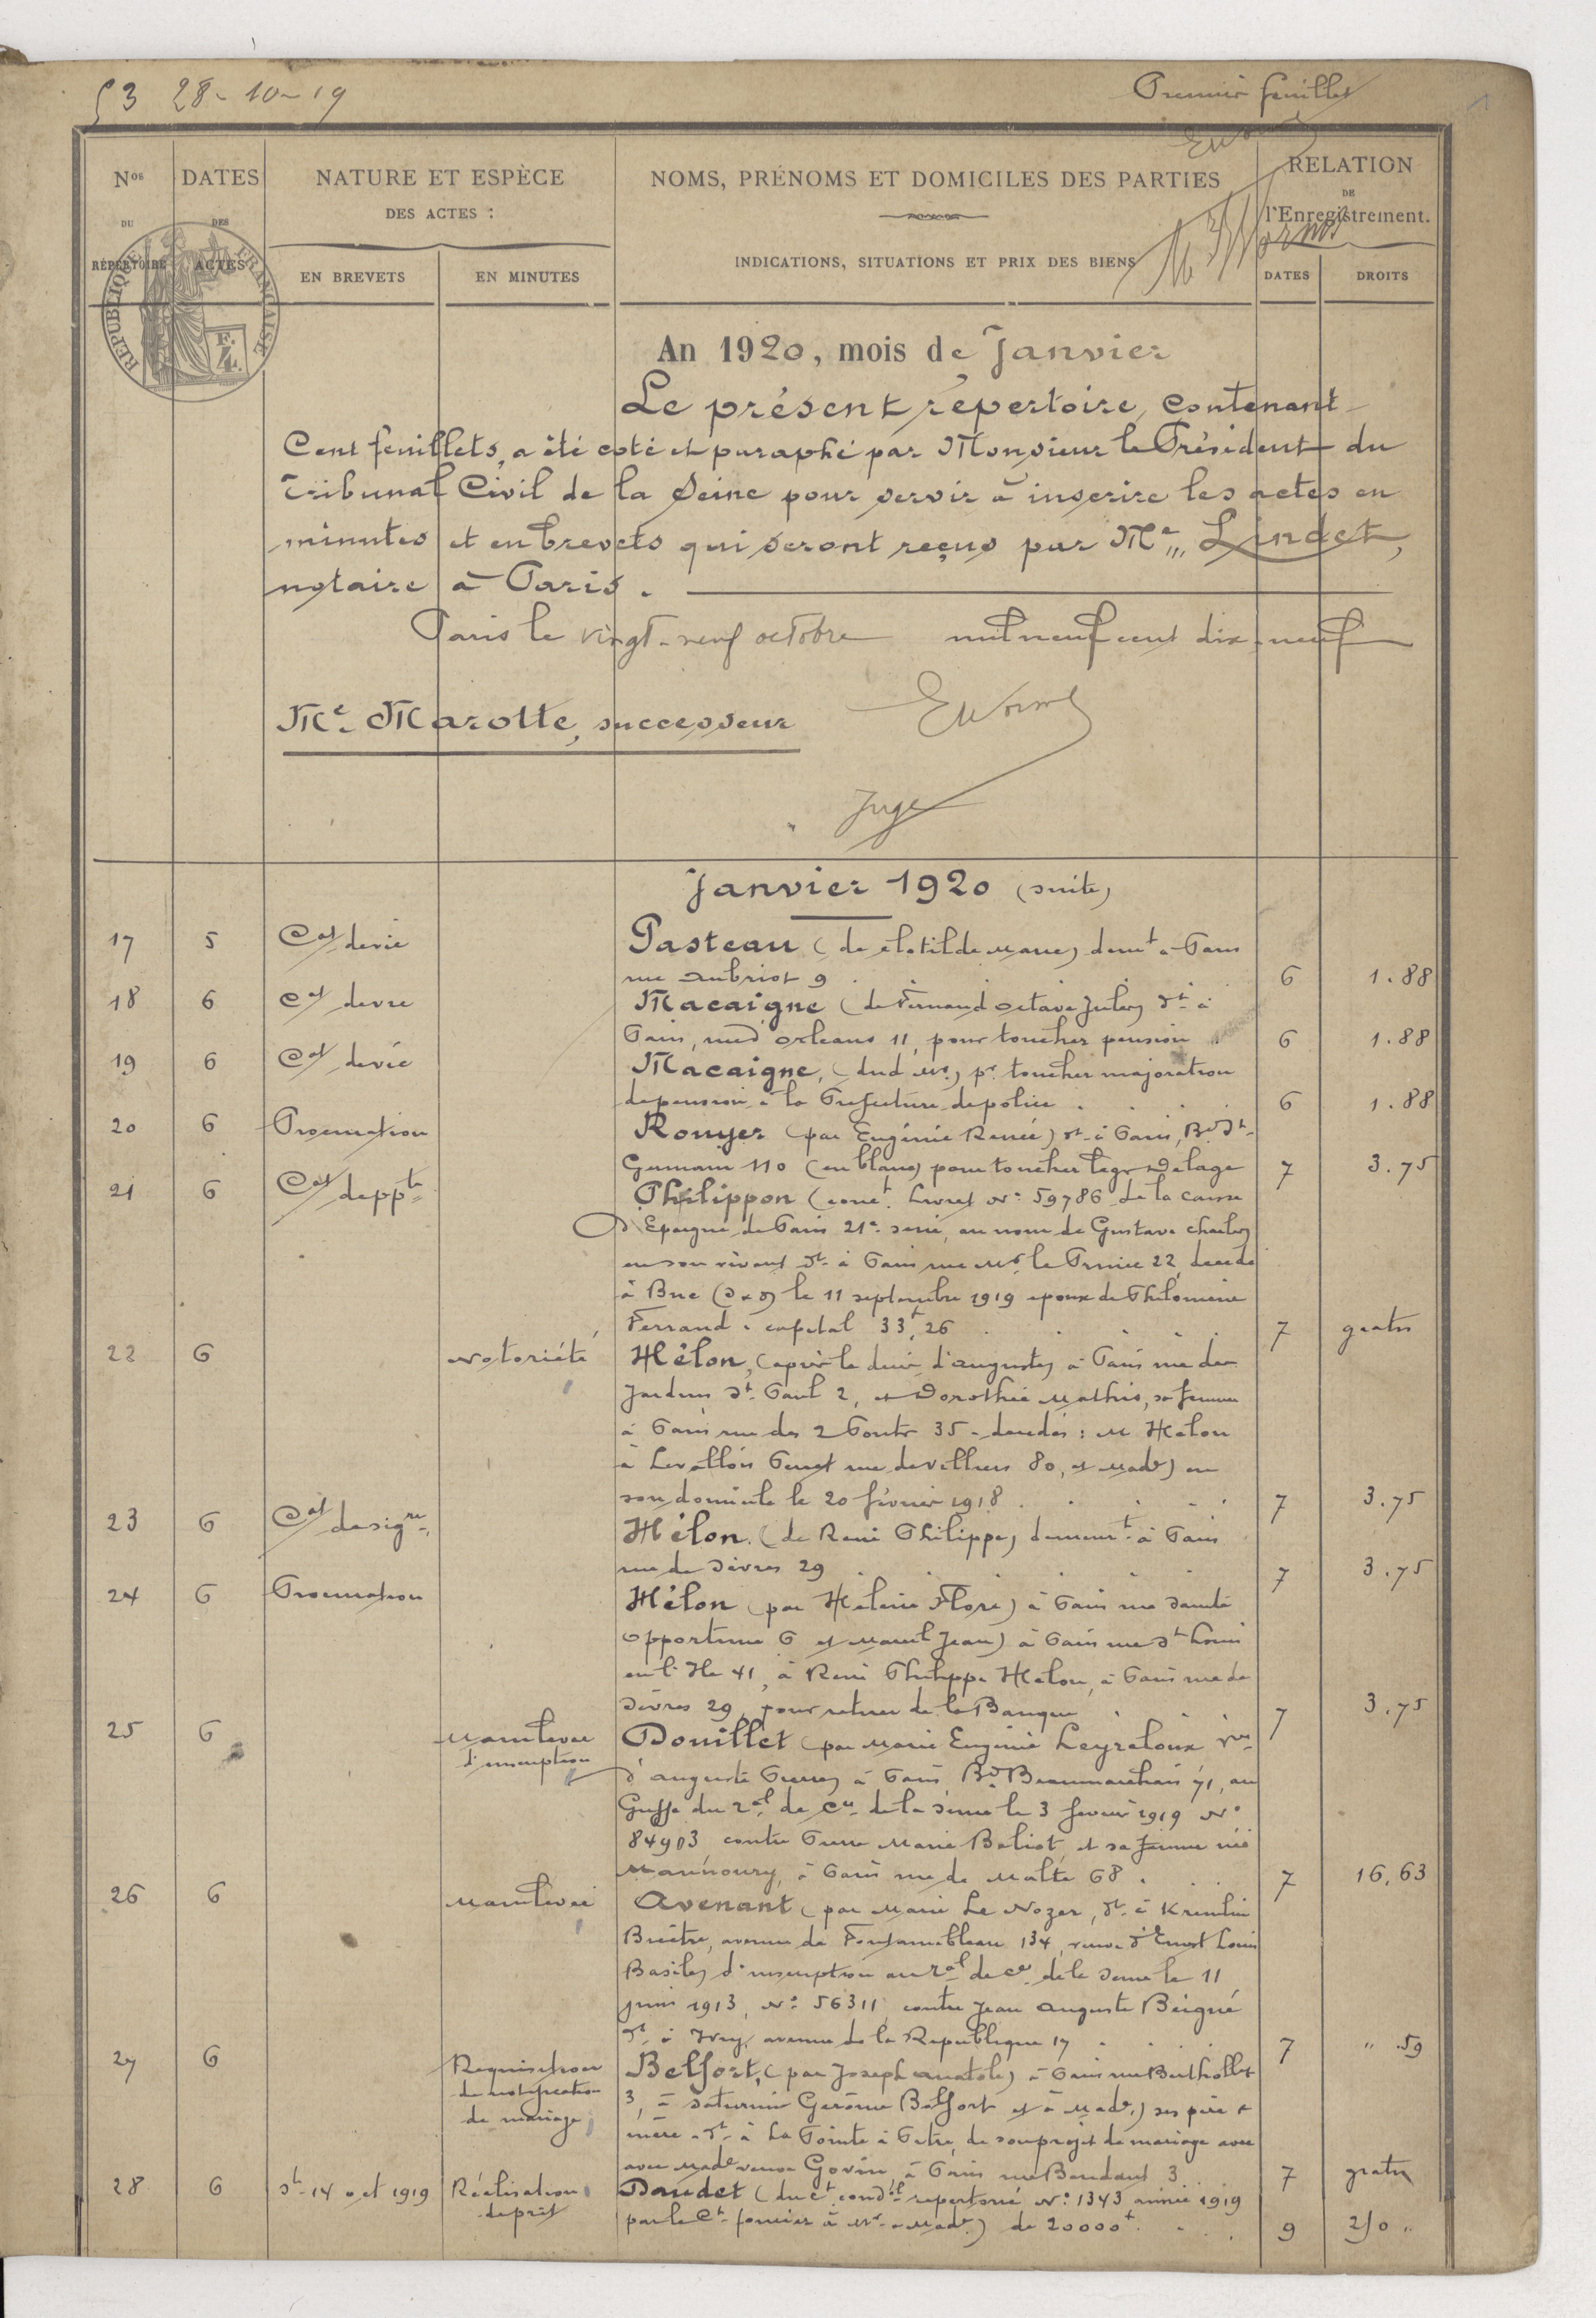 53 28-10-19
Premier feuillet
1
Nos DU RÉPERTOIRE
DATES DES ACTES
NATURE ET ESPÈCE
DES ACTES :
EN BREVETS
EN MINUTES
NOMS, PRÉNOMS ET DOMICILES DES PARTIES
INDICATIONS, SITUATIONS ET PRIX DES BIENS
RELATION
DE
l'Enregistrement.
DATES
DROITS
RÉPUBLIQUE FRANÇAISE
An 1920, mois de Janvier
Le présent répertoire, contenant
Cent feuillets, a été coté et paraphé par Monsieur le Président du
Tribunal Civil de la Seine pour servir à inscrire les actes en
minutes et en brevets qui seront reçus par Me Lindet,
notaire à Paris.
Paris le vingt-neuf octobre mil neuf cent dix-neuf
Me Marotte, successeur
EWorms
Juge
Janvier 1920 (suite)
17 5 Cat de vie Pasteau (de Clotilde Marie) demt à Paris
rue Aubriot 9 6 1.88
18 6 Cat de vie Macaigne (de Fernand Octave Jules) dt à
Paris, rue d'Orleans 11, pour toucher pension 6 1.88
19 6 Cat de vie Macaigne, (dud Mr) pr toucher majoration
de pension à la Prefecture de police 6 1.88
20 6 Procuration Rouyer (par Eugénie Renée) dt à Paris, Bd St
Germain 110 (en blanc) pour toucher legs Delage 7 3.75
21 6 Cat de ppté Philippon (conct Livret No 59786 de la Caisse
d'Epargne de Paris 21e serie, au nom de Gustave Charles)
en son vivant dt à Paris rue Mr le Prince 22, décédé
à Buc (S & O) le 11 septembre 1919 epoux de Philomène
Ferrand. capital 33f,26 7 gratis
22 6 Notoriété Hélon, (après le décès d'Auguste) à Paris rue des
Jardins St Paul 2, et Dorothée Mathis, sa femme
à Paris rue des 2 Ponts 35 - décédés : M Hélon
à Levallois Perret rue de Villiers 80, et Made) en
son domicile le 20 février 1918 7 3.75
23 6 Cat de sigre Hélon (de René Philippe) demeurt à Paris
rue de Sèvres 29 7 3.75
24 6 Procuration Hélon (par Hélène Flore) à Paris rue Sainte
Opportune 6 et Marcel Jean) à Paris rue St Louis
en l'Ile 41, à René Philippe Hélon, à Paris rue de
Sèvres 29, pour retirer de la Banque 7 3.75
25 6 Mainlevée
d'inscription
Douillet (par Marie Eugénie Leyreloux vve
d'Auguste Pierre) à Paris Bd Beaumarchais 71, au
Greffe du Tal de Cce de la Seine le 3 février 1919 No
84903 contre Pierre Marie Beliot, et sa femme née
Mannoury, à Paris rue de Malte 68 7 16.63
26 6 Mainlevée Avenant (par Marie Le Nozer, dt à Kremlin
Bicêtre, avenue de Fontainebleau 134, veuve d'Ernest Louis
Basile) d'inscription au Tal de Cce de la Seine le 11
juin 1913, No 56311 contre Jean Auguste Beigné
dt à Ivry, avenue de la Republique 17 7 " .59
27 6 Requisition
de notification
de mariage
Belfort, (par Joseph Anatole) à Paris rue Berthollet
3, à Saturnin Gerôme Belfort et à Made) ses père &
mère dt à La Pointe à Pitre, de son projet de mariage avec
avec Made veuve Govin, à Paris rue Baudant 3 7 gratis
28 6 dt 14 oct 1919 Réalisation
de prêt
Daudet (du ct condel repertorié No 1343 année 1919
par le Ct foncier à Mr & Made) de 20000f 9 210 "